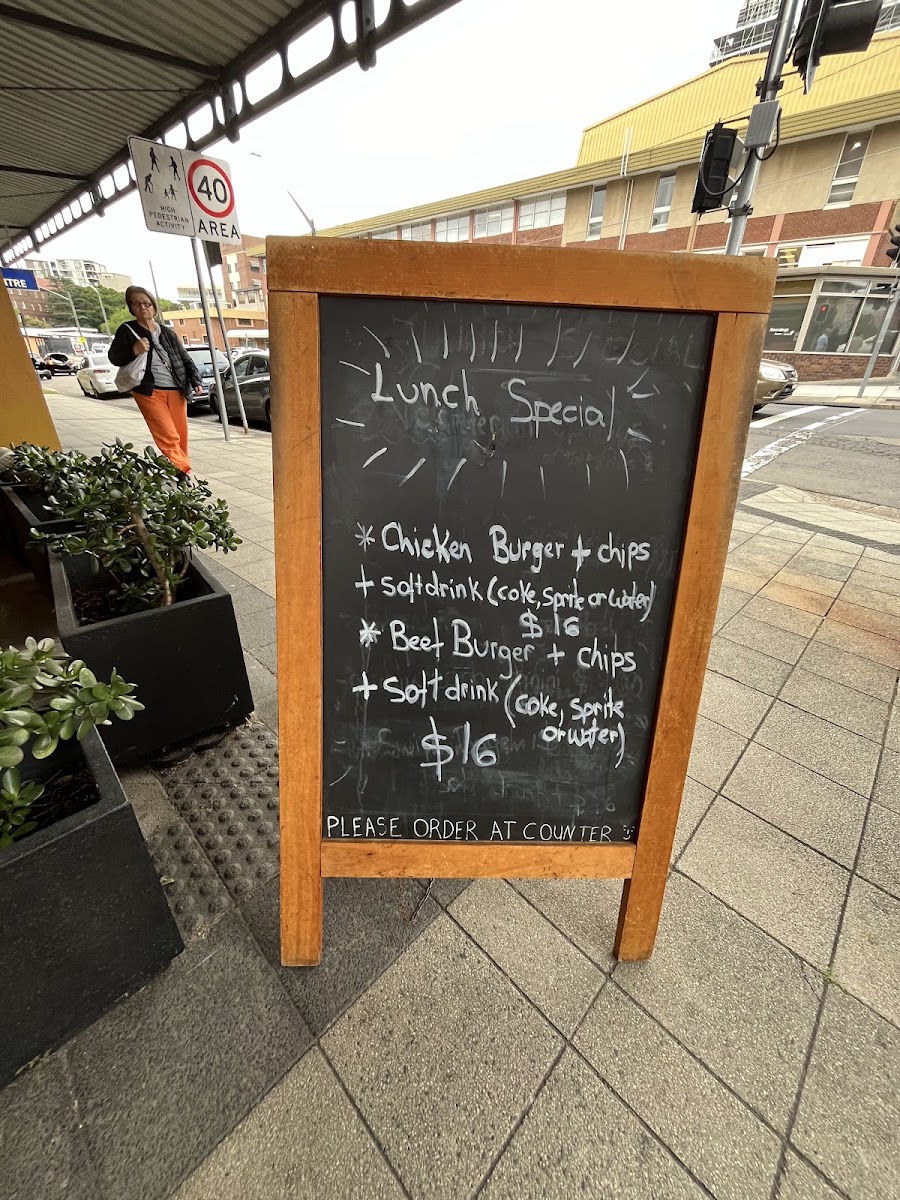 HIGH
PEDESTRIAN
ACTIVITY
40
AREA
TRE
Lunch Special
* Chicken Burger + chips
+ softdrink (coke, sprite or water)
$16
* Beef Burger + chips
+ Soft drink (coke, sprite
or water)
$16
PLEASE ORDER AT COUNTER